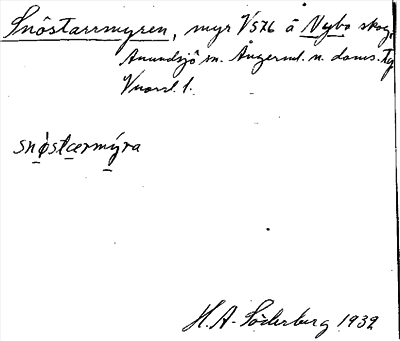 Snöstarrmyren, myr V 576 å Nybo skog,
Anundsjö sn. Ångerml. n. doms. tg
Vnorrl. l.
snøstærmýra
H. A. Söderberg 1932